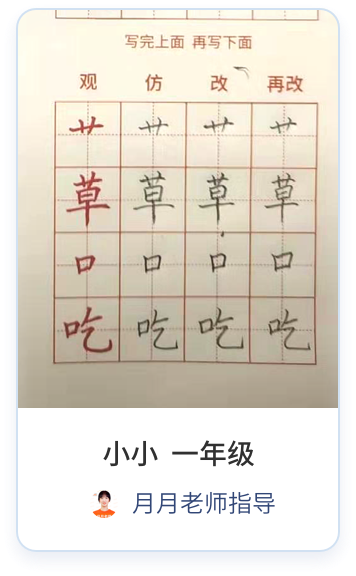 写完上面 再写下面
观 仿 改 再改
艹 艹 艹 艹
草 草 草 草
口 口 口 口
吃 吃 吃 吃
小小 一年级
月月老师指导